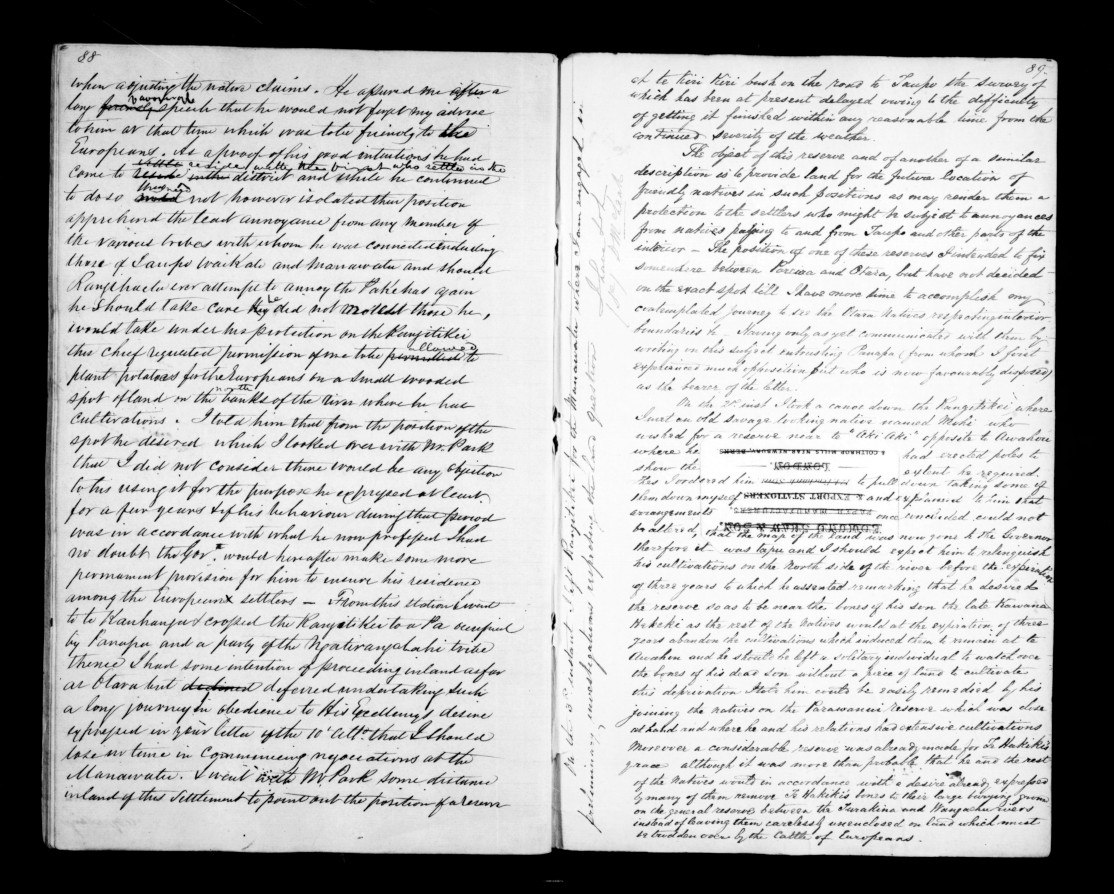 88
when adjusting the native claims. He assured me after a
long favorable speech that he would not forget my advice
to him at that time which was to be friendly to the
Europeans. As a proof of his good intentions he had
come to reside with the first who settled in the
district and while he continued
to do so should not however isolated their position
apprehend the least annoyance from any member of
the various tribes with whom he was connected including
those of Taupo Waikato and Manawatu and should
Rangihaeta ever attempt to annoy the Pakehas again
he should take care they did not molest those he,
would take under his protection on the Rangitikei
this chief requested permission of me to be permitted allowed to
plant potatoes for the Europeans on a small wooded
spot of land on the north banks of the river where he has
cultivations. I told him that from the position of the
spot he desired which I looked over with Mr. Park
that I did not consider there would be any objection
to his using it for the purpose he expressed at least
for a few years & if his behaviour during that period
was in accordance with what he now professed I had
no doubt the Govt. would hereafter make some more
permament provision for him to ensure his residence
among the European settlers – From this station I went
to te Kauhanga & crossed the Rangitikei to a Pa occupied
by Panapa and a party of the Ngatirangatahi tribe
thence I had some intention of proceeding inland as far
as Otara but declined deferred undertaking such
a long journey in obedience to His Excellency's desire
expressed in your letter of the 10th Ulto. that I should
lose no time in Commencing negociations at the
Manawatu. I went with Mr. Park some distance
inland of this Settlement to point out the position of a reserve
89.
at te Kiri Kiri bush on the road to Taupo the survey of
which has been at present delayed owing to the difficulty
of getting it finished within any reasonable time from the
continued severity of the weather.
The object of this reserve and of another of a similar
description is to provide land for the future location of
friendly natives in such positions as may render them a
protection to the settlers who might be subject to annoyances
from natives passing to and from Taupo and other parts of the
interior – The position of one of these reserves I intended to fix
somewhere between Porewa and Otara, but have not decided
on the exact spot till I have more time to accomplish my
contemplated journey to see the Otara Natives respecting interior
boundaries &c. Having only as yet communicated with them by
writing on this subject entrusting Panapa (from whom I first
experienced much opposition but who is now favourably disposed)
as the bearer of the letter.
On the inst I took a canoe down the Rangitikei where
I met an old savage looking native named Mohi who
wished for a reserve near to "Aki Aki" opposite to Awahou
where he had erected poles to
show the extent he required.
this I ordered him to pull down taking some of
them down myself and explained to him that
arrangements once concluded could not
be altered, that the map of the land was now gone to the Governor
therefore it was tapu and I should expect him to relinquish
his cultivations on the North side of the river before the expiration
of three years to which he assented remarking that he desired
the reserve so as to be near the bones of his son the late Kawana
Hakeki as the rest of the natives would at the expiration of three
years abandon the cultivations which induced them to remain at te
Awahou and he should be left a solitary individual to watch over
the bones of his dead son without a piece of land to cultivate
this deprivation I told him could be easily remedied by his
joining the natives on the Parawanui reserve which was close
at hand and where he and his relations had extensive cultivations
Moreover a considerable reserve was already made for Te Hakeki's
grace although it was more than probable that he and the rest
of the Natives would in accordance with a desire already expressed
by many of them remove Te Hakeki's bones to their large burying ground
on the general reserve between the Turakina and Wangaehu rivers
instead of leaving them carelessly unenclosed on land which must
be trodden over by the Cattle of Europeans.
EDMUND SHAW & SON,
PAPER MANUFACTURERS,
& EXPORT STATIONERS
LONDON.
On the 3d instant I left Rangitikei for the Manawatu where I am engaged in
preliminary investigations respecting the land question